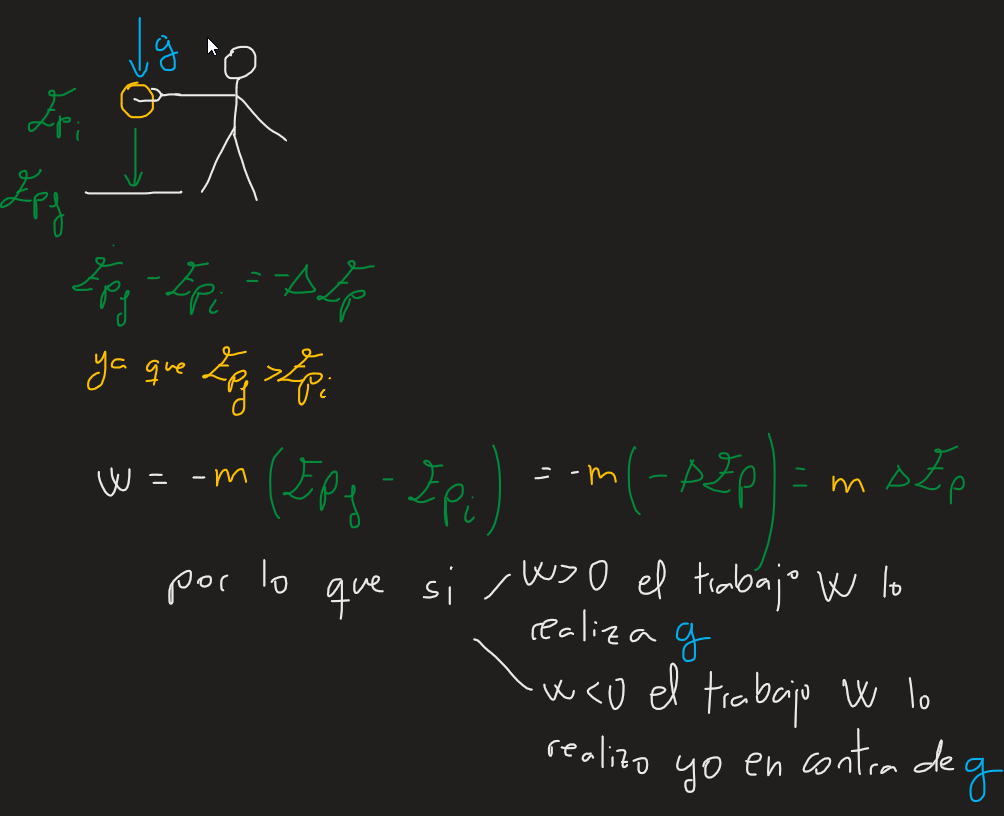 g
Ep_i
Ep_f
Ep_f - Ep_i = -ΔEp
ya que Ep_f > Ep_i
W = -m (Ep_f - Ep_i) = -m (-ΔEp) = m ΔEp
por lo que si W>0 el trabajo W lo
realiza g
W<0 el trabajo W lo
realizo yo en contra de g